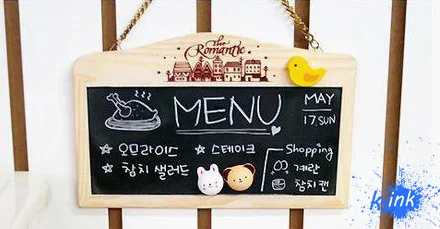 The
Romantic
MENU
MAY
17 SUN
☆ 오므라이스 ☆ 스테이크
☆ 참치 샐러드
Shopping
계란
참치캔
k ink